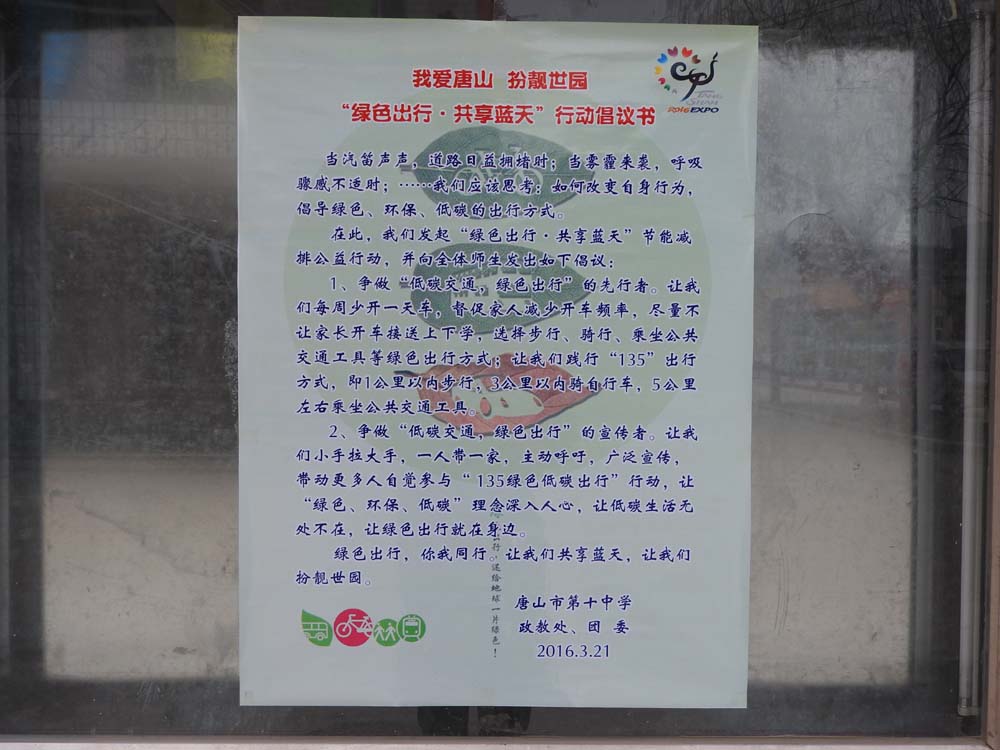 我爱唐山 扮靓世园
“绿色出行·共享蓝天”行动倡议书
TANG
SHAN
2016 EXPO
当汽笛声声，道路日益拥堵时；当雾霾来袭，呼吸
骤感不适时；……我们应该思考：如何改变自身行为，
倡导绿色、环保、低碳的出行方式。
在此，我们发起“绿色出行·共享蓝天”节能减
排公益行动，并向全体师生发出如下倡议：
1、争做“低碳交通，绿色出行”的先行者。让我
们每周少开一天车，督促家人减少开车频率，尽量不
让家长开车接送上下学，选择步行、骑行、乘坐公共
交通工具等绿色出行方式；让我们践行“135”出行
方式，即1公里以内步行，3公里以内骑自行车，5公里
左右乘坐公共交通工具。
2、争做“低碳交通，绿色出行”的宣传者。让我
们小手拉大手，一人带一家，主动呼吁，广泛宣传，
带动更多人自觉参与“135绿色低碳出行”行动，让
“绿色、环保、低碳”理念深入人心，让低碳生活无
处不在，让绿色出行就在身边。
绿色出行，你我同行。让我们共享蓝天，让我们
扮靓世园。
行，送给地球一片绿色！
唐山市第十中学
政教处、团 委
2016.3.21